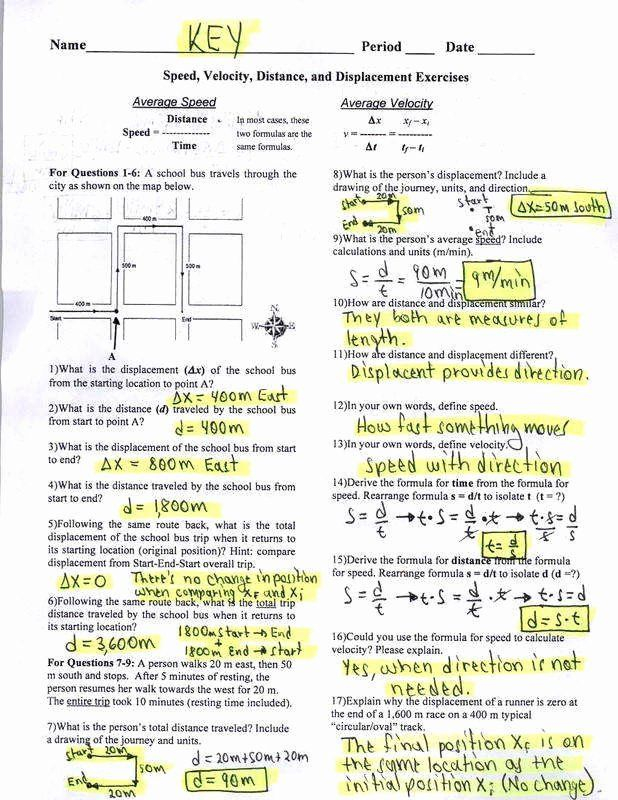 Name KEY Period Date
Speed, Velocity, Distance, and Displacement Exercises
Average Speed
Distance
Speed = -------------
Time
In most cases, these
two formulas are the
same formulas.
Average Velocity
Δx xf – xi
v = ------- = ---------
Δt tf – ti
For Questions 1-6: A school bus travels through the
city as shown on the map below.
400 m
500 m 500 m
400 m
Start End
N
W E
S
A
1)What is the displacement (Δx) of the school bus
from the starting location to point A?
ΔX = 400m East
2)What is the distance (d) traveled by the school bus
from start to point A?
d = 400m
3)What is the displacement of the school bus from start
to end? ΔX = 800m East
4)What is the distance traveled by the school bus from
start to end?
d = 1,800m
5)Following the same route back, what is the total
displacement of the school bus trip when it returns to
its starting location (original position)? Hint: compare
displacement from Start-End-Start overall trip.
ΔX = 0 There's no change in position
when comparing XF and Xi
6)Following the same route back, what is the total trip
distance traveled by the school bus when it returns to
its starting location?
1800m Start → End
+
d = 3,600m 1800m End → Start
For Questions 7-9: A person walks 20 m east, then 50
m south and stops. After 5 minutes of resting, the
person resumes her walk towards the west for 20 m.
The entire trip took 10 minutes (resting time included).
7)What is the person's total distance traveled? Include
a drawing of the journey and units.
Start 20m
50m
End
20m
d = 20m+50m+20m
d = 90m
8)What is the person's displacement? Include a
drawing of the journey, units, and direction.
Start 20m
50m
End
20m
start
50m
end
ΔX = 50m South
9)What is the person's average speed? Include
calculations and units (m/min).
S = d/t = 90m/10min = 9m/min
10)How are distance and displacement similar?
They both are measures of
length.
11)How are distance and displacement different?
Displacent provides direction.
12)In your own words, define speed.
How fast something moves
13)In your own words, define velocity.
Speed with direction
14)Derive the formula for time from the formula for
speed. Rearrange formula s = d/t to isolate t (t = ?)
S = d/t → t·S = d/t · t → t·s/s = d/s
t = d/s
15)Derive the formula for distance from the formula
for speed. Rearrange formula s = d/t to isolate d (d =?)
S = d/t → t·S = d/t · t → t·s = d
d = s·t
16)Could you use the formula for speed to calculate
velocity? Please explain.
Yes, when direction is not
needed.
17)Explain why the displacement of a runner is zero at
the end of a 1,600 m race on a 400 m typical
"circular/oval" track.
The final position XF is on
the same location as the
initial position Xi (No change).